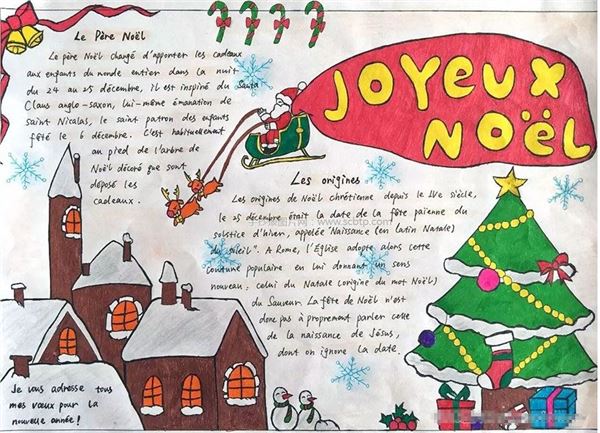 Le Père Noël
Le père Noël chargé d'apporter les cadeaux
aux enfants du monde entier dans la nuit
du 24 au 25 décembre, il est inspiré du Santa
Claus anglo-saxon, lui-même émanation de
saint Nicalas, le saint patron des enfants
fêté le 6 décembre. C'est habituellement
au pied de l'arbre de
Noël décoré que sont
déposé les
cadeaux.
JOYEUX
NOËL
Les origines
Les origines de Noël chrétienne depuis le IVe siècle,
le 25 décembre était la date de la fête païenne du
solstice d'hiver, appelée "Naissance (en latin Natale)
du soleil". A Rome, l'Église adopte alors cette
coutume populaire en lui donnant un sens
nouveau: celui du Natale (origine du mot Noël)
du Sauveur. La fête de Noël n'est
donc pas à proprement parler celle
de la naissance de Jésus,
dont on ignore la date.
Je vous adresse tous
mes vœux pour la
nouvelle année!
www.scbtp.com